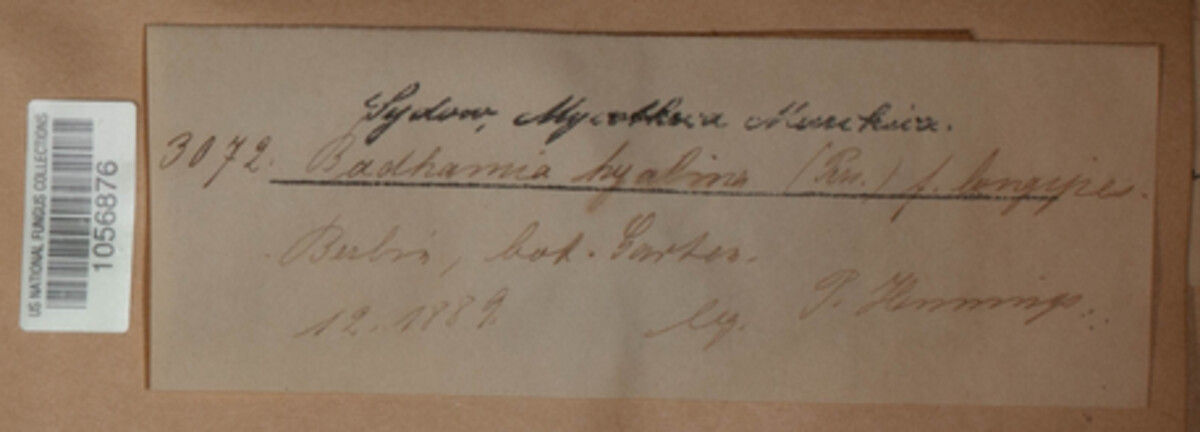 US NATIONAL FUNGUS COLLECTIONS
1056876
Sydow, Mycotheca Marchica.
3072. Badhamia hyalina (Pers.) f. longipes.
Berlin, bot. Garten.
12.1889. leg. P. Hennings.